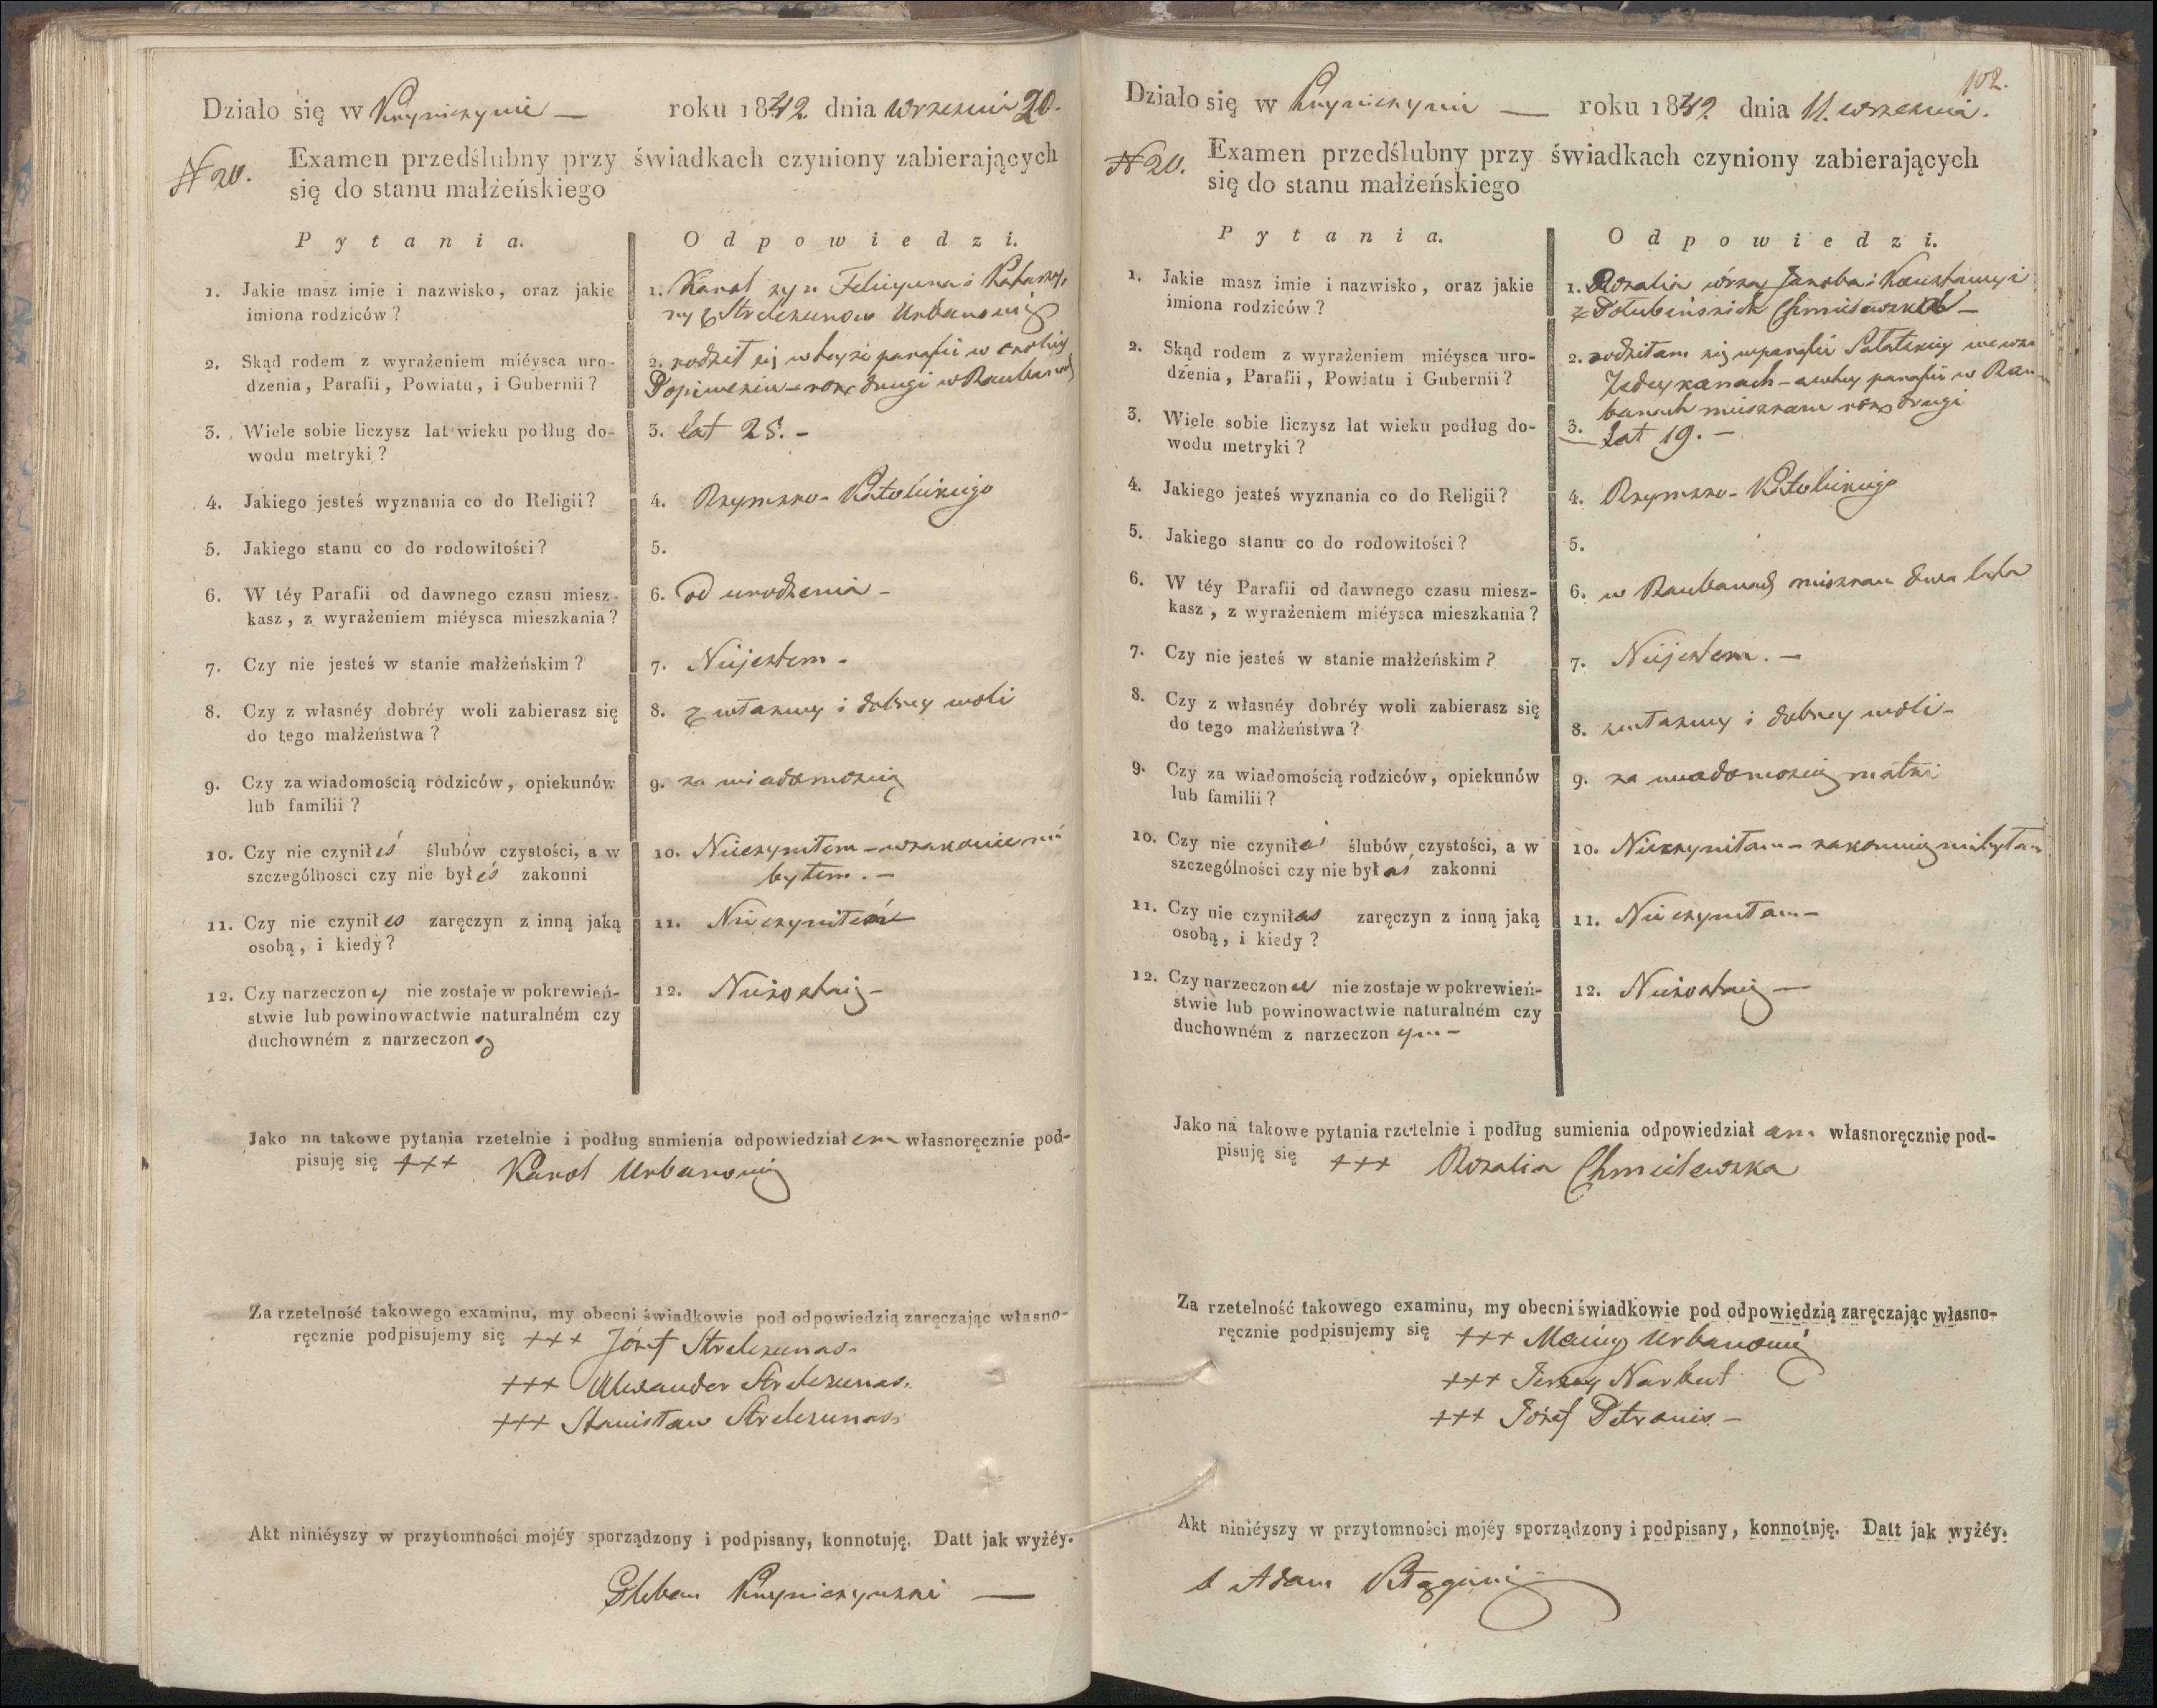 Działo się w Kryniczynie — roku 1842. dnia Wrzesnia 20.
N 20. Examen przedślubny przy świadkach czyniony zabierających
się do stanu małżeńskiego
Pytania. Odpowiedzi.
1. Jakie masz imie i nazwisko, oraz jakie
imiona rodziców?
1. Karol syn Felicyana i Katarzy-
ny z Strelczunow Urbanowicz
2. Skąd rodem z wyrażeniem miéysca uro-
dzenia, Parafii, Powiatu, i Gubernii?
2. rodził się w teyże parafii w okolicy
rok drugi w Raubanach
3. Wiele sobie liczysz lat wieku podług do-
wodu metryki?
3. lat 25. -
4. Jakiego jesteś wyznania co do Religii?
4. Rzymsko-Katolickiego
5. Jakiego stanu co do rodowitości?
5.
6. W téy Parafii od dawnego czasu miesz-
kasz, z wyrażeniem miéysca mieszkania?
6. od urodzenia -
7. Czy nie jesteś w stanie małżeńskim?
7. Niejestem -
8. Czy z własnéy dobréy woli zabierasz się
do tego małżeństwa?
8. z własney i dobrey woli
9. Czy za wiadomością rodziców, opiekunów
lub familii?
9. za wiadomością
10. Czy nie czyniłeś ślubów czystości, a w
szczególności czy nie byłeś zakonni
10. Nieczyniłem - w zakonie nie
byłem. -
11. Czy nie czyniłes zaręczyn z inną jaką
osobą, i kiedy?
11. Nieczyniłem
12. Czy narzeczony nie zostaje w pokrewień-
stwie lub powinowactwie naturalném czy
duchowném z narzeczoną
12. Niezostaię -
Jako na takowe pytania rzetelnie i podług sumienia odpowiedziałem własnoręcznie pod-
pisuję się +++ Karol Urbanowicz
Za rzetelność takowego examinu, my obecni świadkowie pod odpowiedzią zaręczając własno-
ręcznie podpisujemy się +++ Józef Strelczunas.
+++ Alexander Strelczunas.
+++ Stanisław Strelczunas.
Akt niniéyszy w przytomności mojéy sporządzony i podpisany, konnotuję. Datt jak wyżéy.
Pleban Kryniczynski —
102.
Działo się w Kryniczynie — roku 1842 dnia 11. wrzesnia.
N 20. Examen przedślubny przy świadkach czyniony zabierających
się do stanu małżeńskiego
Pytania. Odpowiedzi.
1. Jakie masz imie i nazwisko, oraz jakie
imiona rodziców?
1. Rozalia córka Jakoba i Konstancyi
z Dołubinskich Chmielewskich -
2. Skąd rodem z wyrażeniem miéysca uro-
dzenia, Parafii, Powiatu i Gubernii?
2. rodziłam się w parafii Sałatskiey we wsi
- a w tey parafii w Rau-
banach mieszkam rok drugi
3. Wiele sobie liczysz lat wieku podług do-
wodu metryki?
3. Lat 19. -
4. Jakiego jesteś wyznania co do Religii?
4. Rzymsko-Katolickiego
5. Jakiego stanu co do rodowitości?
5.
6. W téy Parafii od dawnego czasu miesz-
kasz, z wyrażeniem miéysca mieszkania?
6. w Raubanach mieszkam dwa lata
7. Czy nie jesteś w stanie małżeńskim?
7. Niejestem. -
8. Czy z własnéy dobréy woli zabierasz się
do tego małżeństwa?
8. z własney i dobrey woli -
9. Czy za wiadomością rodziców, opiekunów
lub familii?
9. za wiadomością matki
10. Czy nie czyniłaś ślubów czystości, a w
szczególności czy nie byłaś zakonni
10. Nieczyniłam - zakonnicą niebyłam
11. Czy nie czyniłas zaręczyn z inną jaką
osobą, i kiedy?
11. Nieczyniłam -
12. Czy narzeczona nie zostaje w pokrewień-
stwie lub powinowactwie naturalném czy
duchowném z narzeczonym -
12. Niezostaię —
Jako na takowe pytania rzetelnie i podług sumienia odpowiedziałam własnoręcznie pod-
pisuję się +++ Rozalia Chmielewska
Za rzetelność takowego examinu, my obecni świadkowie pod odpowiedzią zaręczając własno-
ręcznie podpisujemy się +++ Maciey Urbanowicz
+++ Jerzy Narbut
+++ Józef Petranis -
Akt niniéyszy w przytomności mojéy sporządzony i podpisany, konnotuję. Datt jak wyżéy.
X Adam